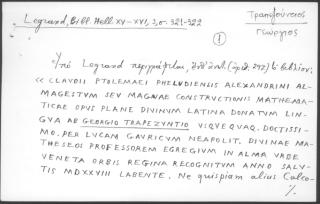 Legrand, Bibl. Hell. XV-XVI, 3, σ. 321-322
Τραπεζούντιος
Γεώργιος
!
Ὑπό Legrand περιγράφεται, (ἀριθ. 292) τό βιβλίον:
« CLAVDII PTOLEMAEI PHELUDIENSIS ALEXANDRINI AL-
MAGESTUM SEV MAGNAE CONSTRUCTIONIS MATHEMA-
TICAE OPUS PLANE DIVINUM LATINA DONATUM LIN-
GUA AB GEORGIO TRAPEZVNTIO VSQVEQVAQ. DOCTISSI-
MO. PER LUCAM GAVRICVM NEAPOLIT. DIVINAE MA-
THESEOS PROFESSOREM EGREGIVM IN ALMA VRBE
VENETA ORBIS REGINA RECOGNITVM ANNO SALV-
TIS MDXXVIII LABENTE. Ne quispiam alius Calco-
./.